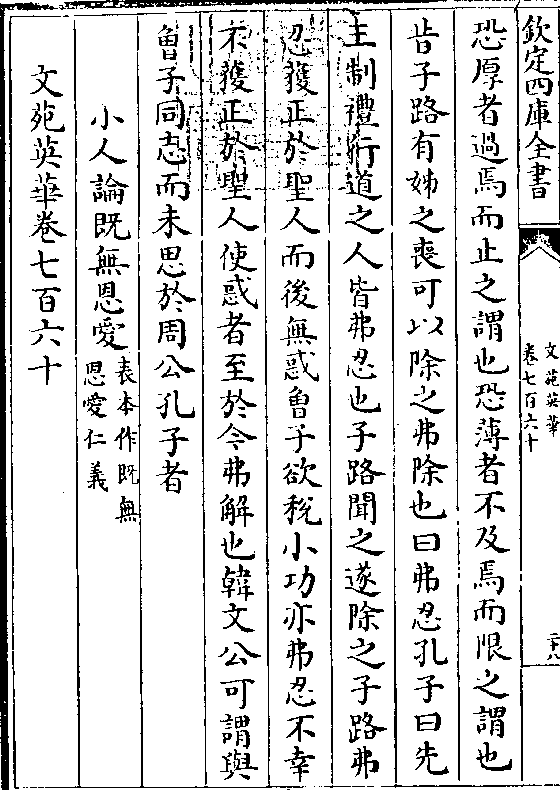 欽定四庫全書
文苑英華
卷七百六十
二十八
恐厚者過焉而止之謂也恐薄者不及焉而限之謂也
昔子路有姊之喪可以除之弗除也曰弗忍孔子曰先
王制禮行道之人皆弗忍也子路聞之遂除之子路弗
忍獲正於聖人而後無惑曾子欲稅小功亦弗忍不幸
不獲正於聖人使惑者至於今弗解也韓文公可謂與
曾子同志而未思於周公孔子者
小人論既無恩愛
表本作既無
恩愛仁義
文苑英華卷七百六十